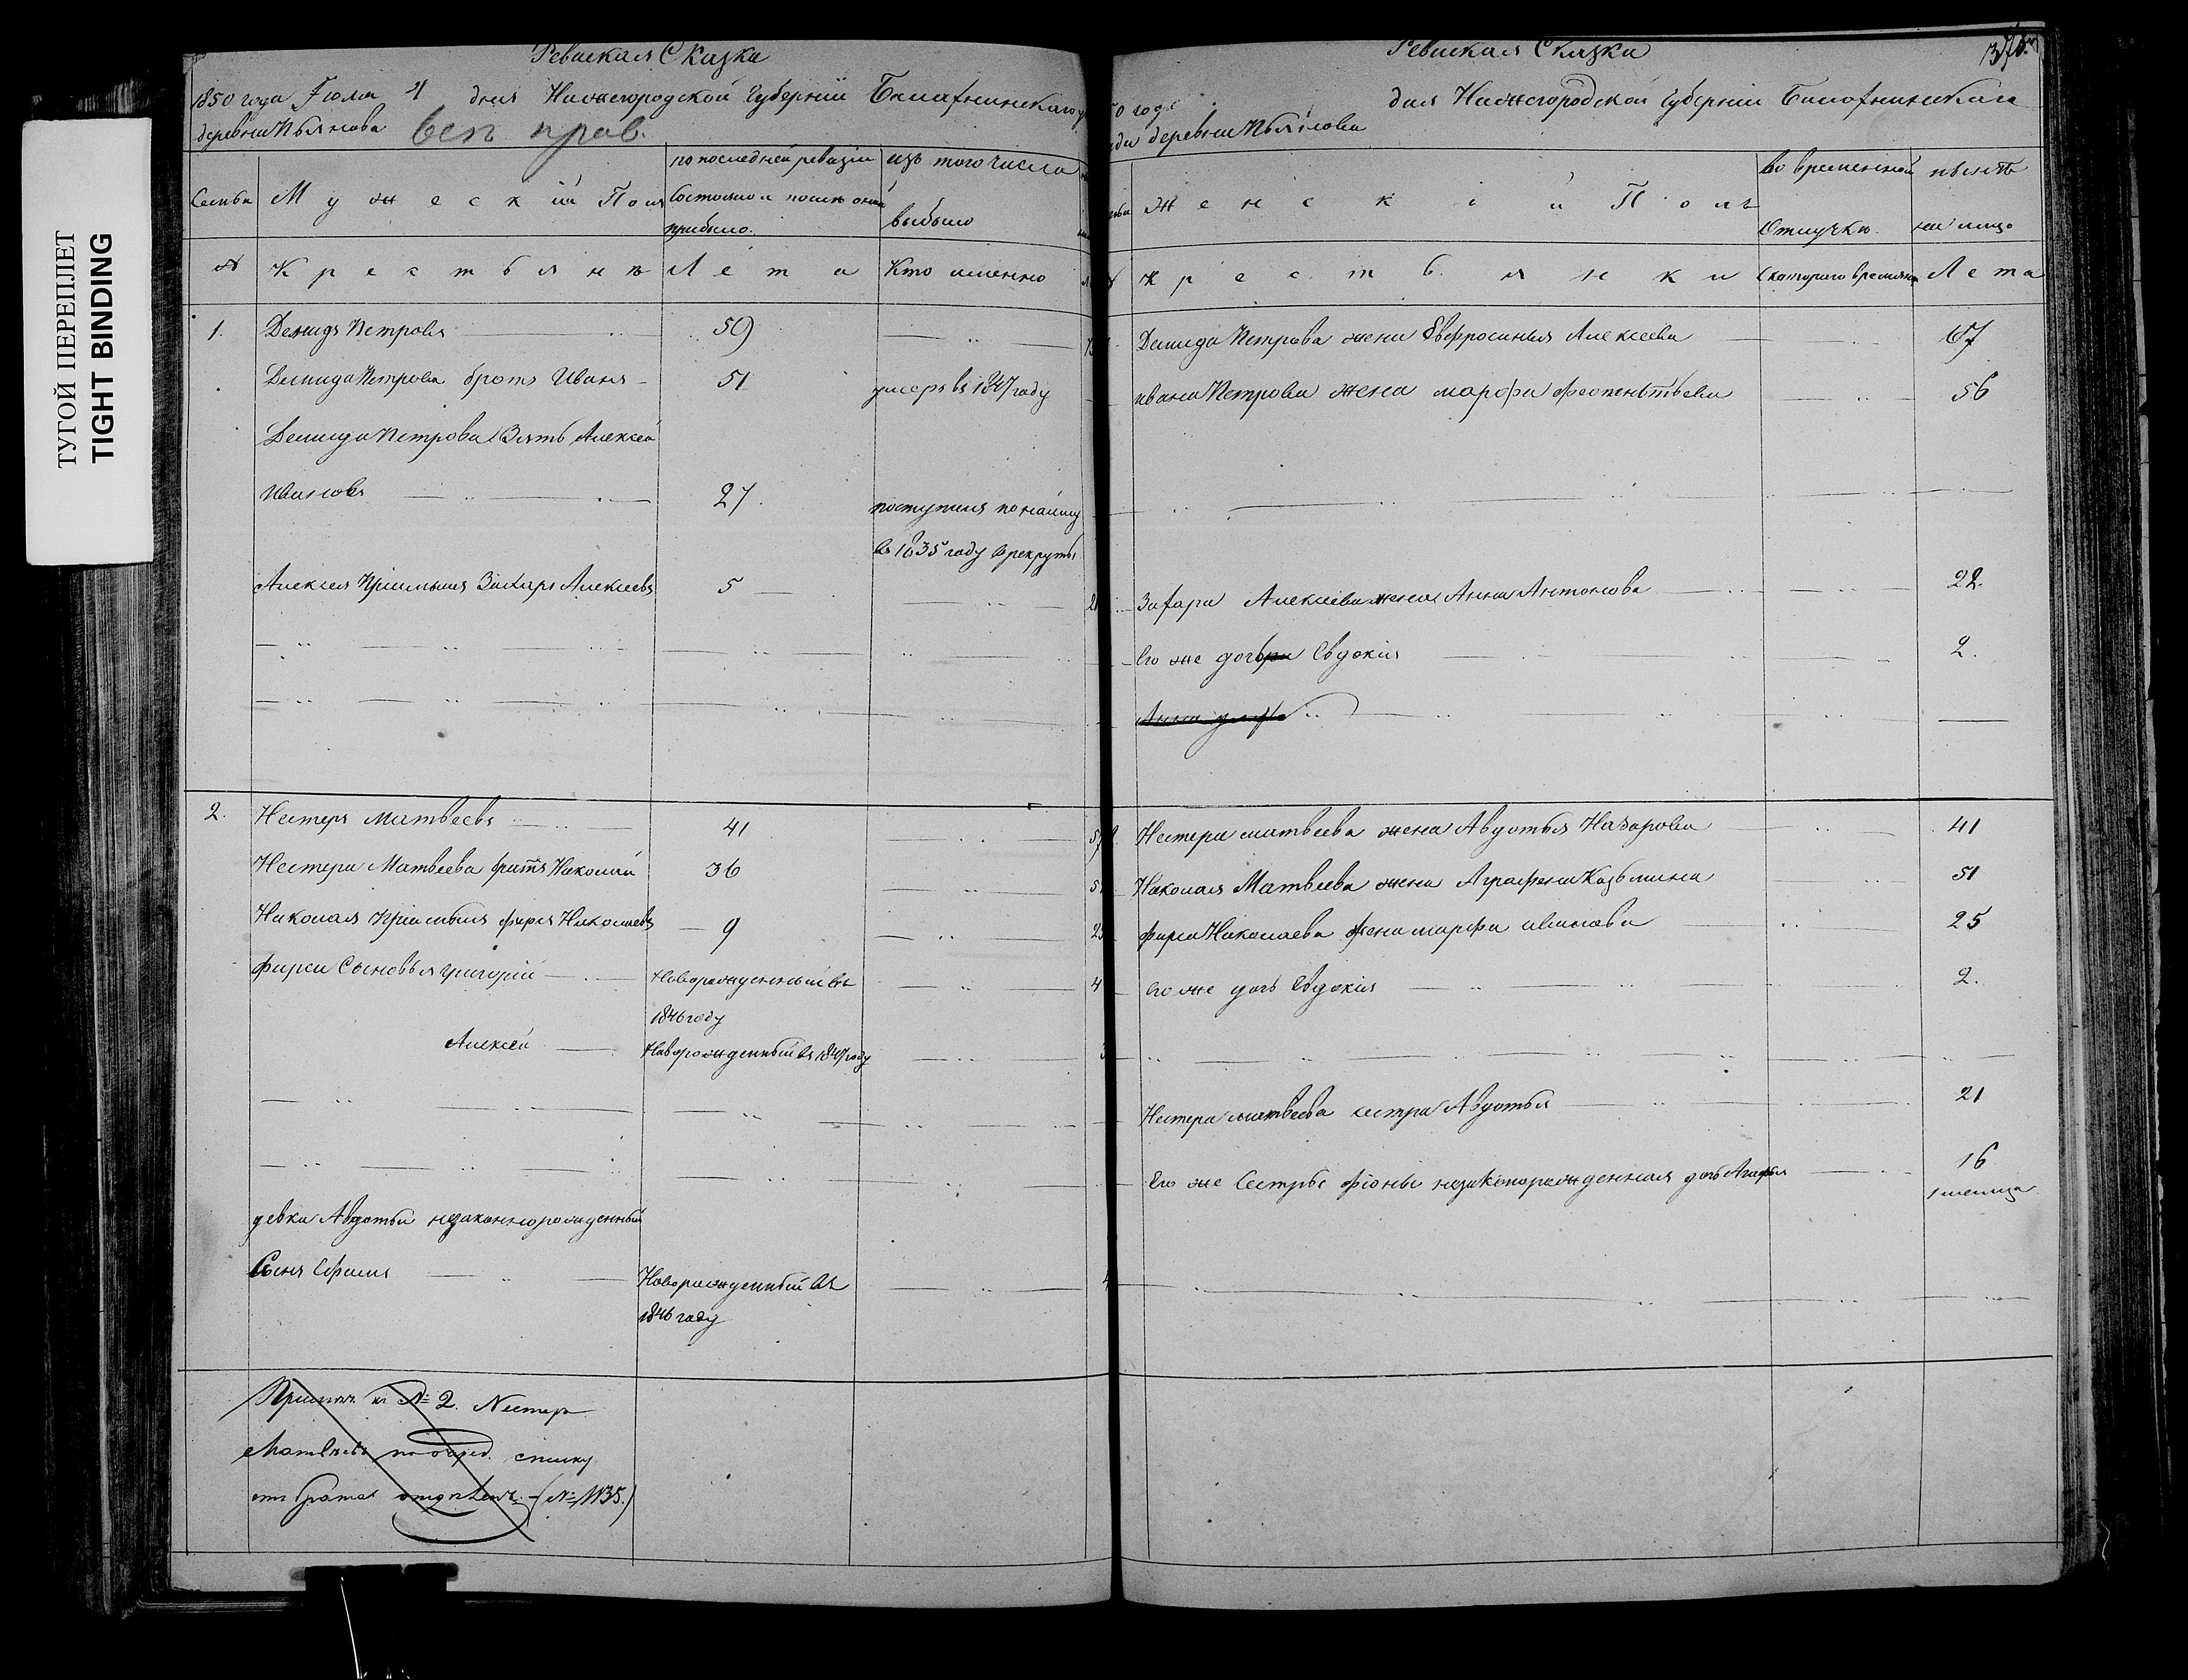 ТУГОЙ ПЕРЕПЛЕТ
TIGHT BINDING
Ревиская Сказка
1850 года Июля 4 дня Нижегородской Губернии Балахнинскаго
деревни Пьянова
Семьи
Мужеский Полъ
по последней ревизии
состояло и после оной
прибыло.
изъ того числа
выбыло
№
Крестьянъ
Лета
Кто именно
1. Демидъ Петровъ 59
Демида Петрова братъ Иванъ 51 умеръ въ 1847 году
Демида Петрова Зять Алексей
Ивановъ 27. поступилъ по найму
въ 1835 году в рекруты
Алексея Приимышъ Захаръ Алексеевъ 5
2. Нестеръ Матвеевъ 41
Нестера Матвеева братъ Николай 36
Николая Приимышъ фирсъ Николаевъ 9
фирса Сыновья Григорий Новорожденный въ
1846 году
Алексей Новорожденный въ 1847 году
девки Авдотьи незаконнорожденный
Сынъ Ефимъ Новорожденный въ
1846 году
къ № 2. Нестеръ
Матвеевъ по очеред. списку
отъ брата отделенъ. (№ 1135.)
Ревиская Сказка
50 года дня Нижегородской Губернии Балахнинскаго
деревни Пьянова
Женский Полъ
во временной
Отлучки.
налицо
Крестьянки
С котораго времяни
Лета
Демида Петрова жена Евфросинья Алексеева 67
ивана Петрова жена марфа 56
Захара Алексеева жена Анна Антонова 22.
Его же дочь Евдокия 2.
Нестера матвеева жена Авдотья Назарова 41
Николая Матвеева жена Аграфена Козьмина 51
фирса Николаева жена марфа иванова 25
Его же дочь Евдокия 2.
Нестера матвеева сестра Авдотья 21
Его же Сестры фионы незаконорожденная дочь Агафья 16